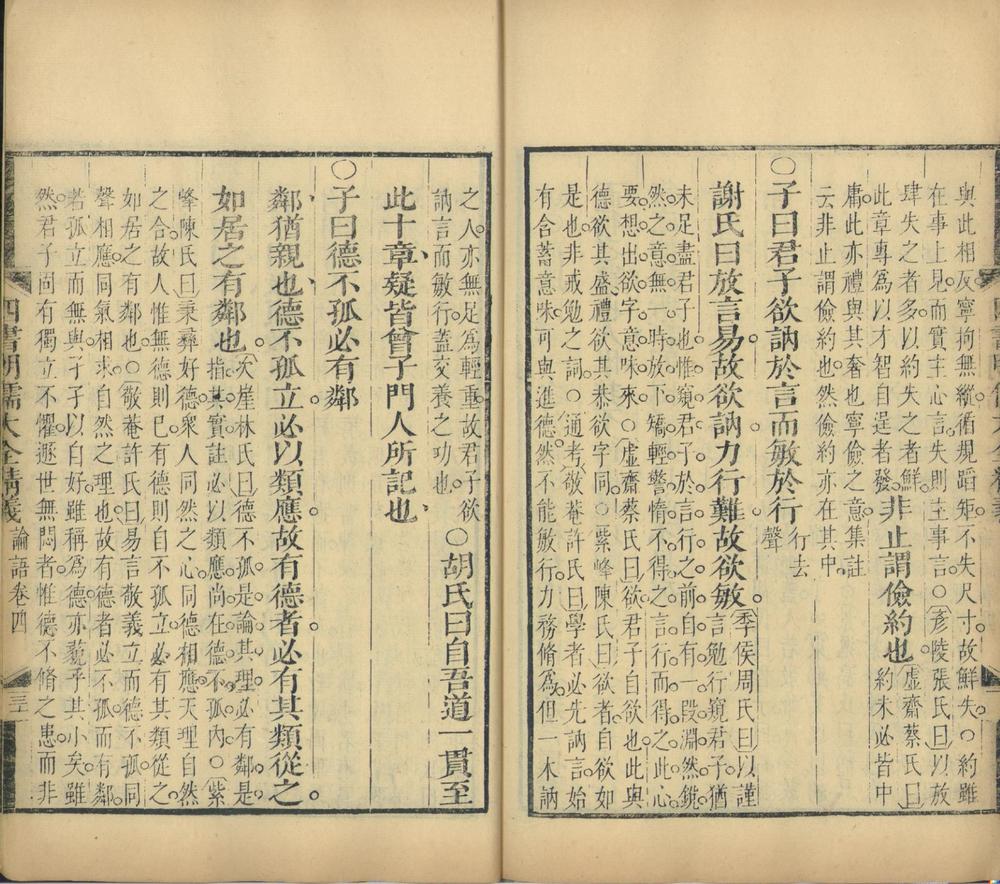 與此相反寧拘無縱循規蹈矩不失尺寸故鮮失○約雖
在事上見而實主心言失則主事言○彥陵張氏曰以放
肆失之者多以約失之者鮮非止謂儉約也虛齋蔡氏曰
此章專為以才智自逞者發約未必皆中
庸此亦禮與其奢也寧儉之意集註
云非止謂儉約也然儉約亦在其中
○子曰君子欲訥於言而敏於行行去聲
謝氏曰放言易故欲訥力行難故欲敏季侯周氏曰以謹
言勉行窺君子猶
未足盡君子也惟窺君子於言行之前自有一段淵然鏡
然之意無一時放下矯輕警惰不得之言行而得之此心
要想出欲字意味來○虛齋蔡氏曰欲君子自欲也此與
德欲其盛禮欲其恭欲字同○紫峰陳氏曰欲者自欲如
是也非戒勉之詞○通考敬菴許氏曰學者必先訥言始
有含蓄意味可與進德然不能敏行力務脩為但一木訥
之人亦無足為輕重故君子欲
訥言而敏行蓋交養之功也
○胡氏曰自吾道一貫至
此十章疑皆曾子門人所記也
○子曰德不孤必有鄰
鄰猶親也德不孤立必以類應故有德者必有其類從之
如居之有鄰也次崖林氏曰德不孤是論其理必有鄰是
指其實註必以類應尚在德不孤內○紫
峰陳氏曰秉彝好德衆人同然之心同德相應天理自然
之合故人惟無德則已有德則自不孤立必有其類從之
如居之有鄰也○敬菴許氏曰易言敬義立而德不孤同
聲相應同氣相求自然之理也故有德者必不孤而有鄰
若孤立而無與孑孑以自好雖稱為德亦藐乎其小矣雖
然君子尚有獨立不懼遯世無悶者惟德不脩之患而非
四書明儒大全精義 論語卷四